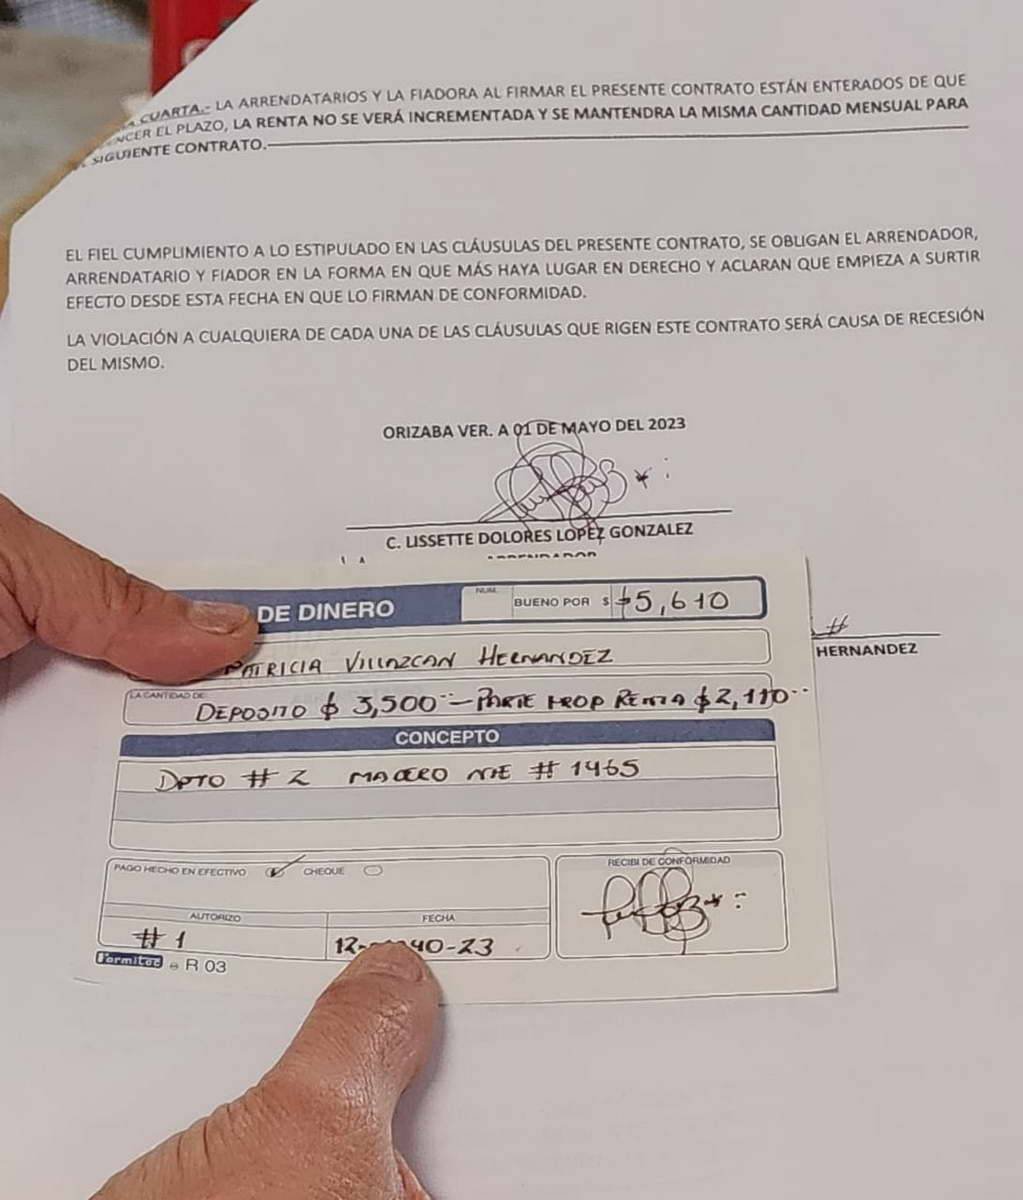 CUARTA.- LA ARRENDATARIOS Y LA FIADORA AL FIRMAR EL PRESENTE CONTRATO ESTÁN ENTERADOS DE QUE
EL PLAZO, LA RENTA NO SE VERÁ INCREMENTADA Y SE MANTENDRA LA MISMA CANTIDAD MENSUAL PARA
SIGUIENTE CONTRATO.
EL FIEL CUMPLIMIENTO A LO ESTIPULADO EN LAS CLÁUSULAS DEL PRESENTE CONTRATO, SE OBLIGAN EL ARRENDADOR,
ARRENDATARIO Y FIADOR EN LA FORMA EN QUE MÁS HAYA LUGAR EN DERECHO Y ACLARAN QUE EMPIEZA A SURTIR
EFECTO DESDE ESTA FECHA EN QUE LO FIRMAN DE CONFORMIDAD.
LA VIOLACIÓN A CUALQUIERA DE CADA UNA DE LAS CLÁUSULAS QUE RIGEN ESTE CONTRATO SERÁ CAUSA DE RECESIÓN
DEL MISMO.
ORIZABA VER. A 01 DE MAYO DEL 2023
C. LISSETTE DOLORES LOPEZ GONZALEZ
DE DINERO NUM. BUENO POR $ 5,610
PATRICIA VILLAZCAN HERNANDEZ
HERNANDEZ
LA CANTIDAD DE
DEPOSITO $ 3,500 - PARTE PROP RENTA $ 2,110
CONCEPTO
DPTO # 2 MADERO NTE # 1465
PAGO HECHO EN EFECTIVO CHEQUE
RECIBI DE CONFORMIDAD
AUTORIZO FECHA
# 1
Formitec R 03